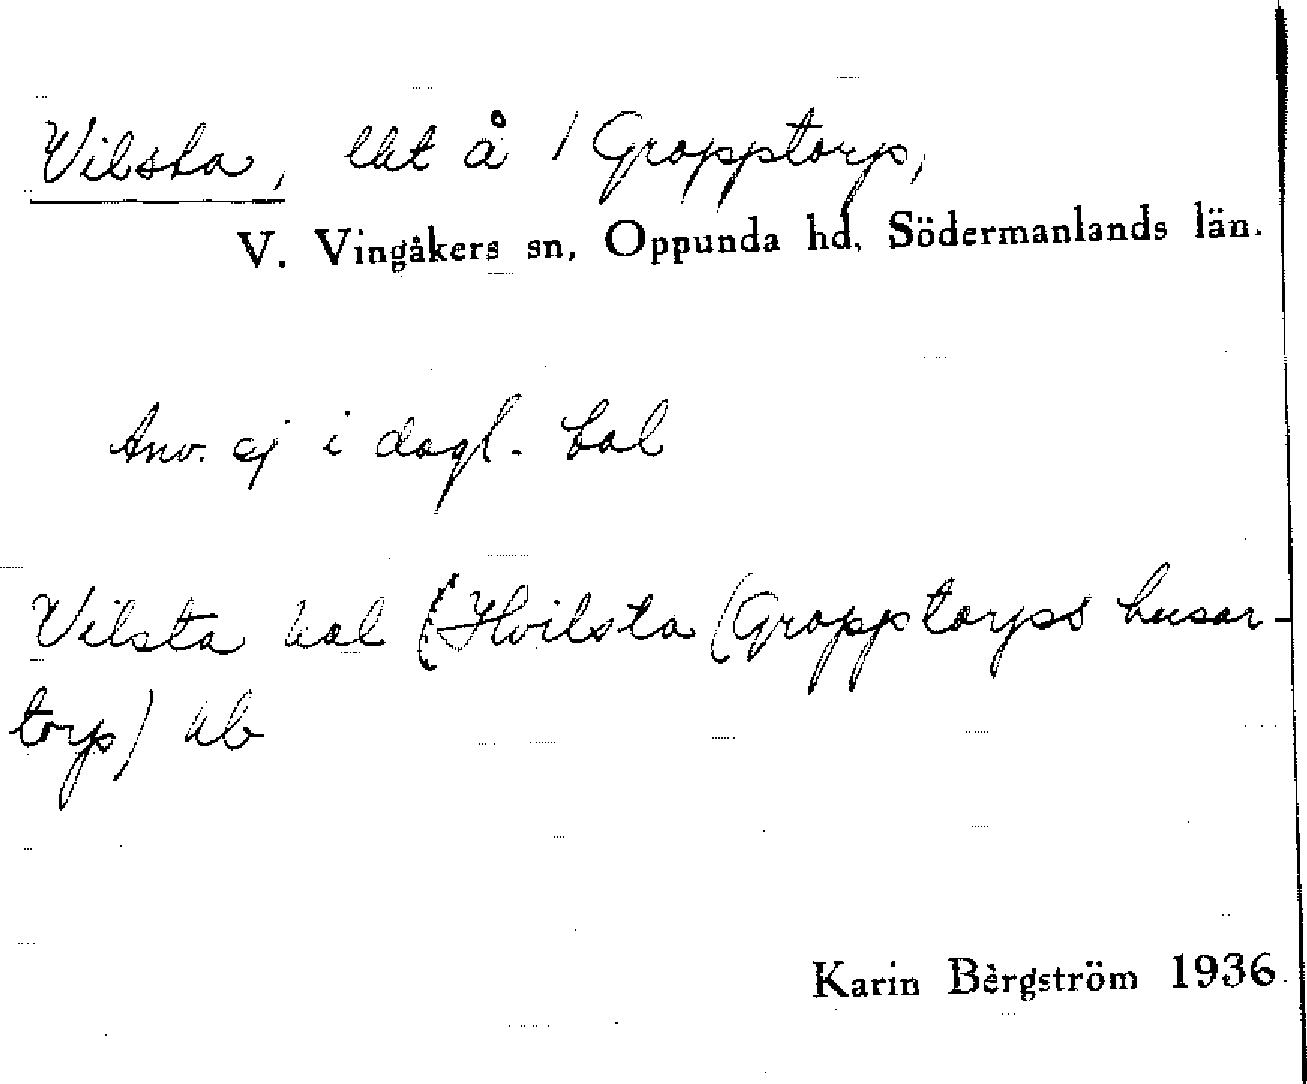 Vilsta, lht å 1 Gropptorp,
V. Vingåkers sn, Oppunda hd, Södermanlands län.
Anv. ej i dagl. tal
Vilsta hal (Hvilsta (Gropptorps husar-
torp) ub
Karin Bergström 1936